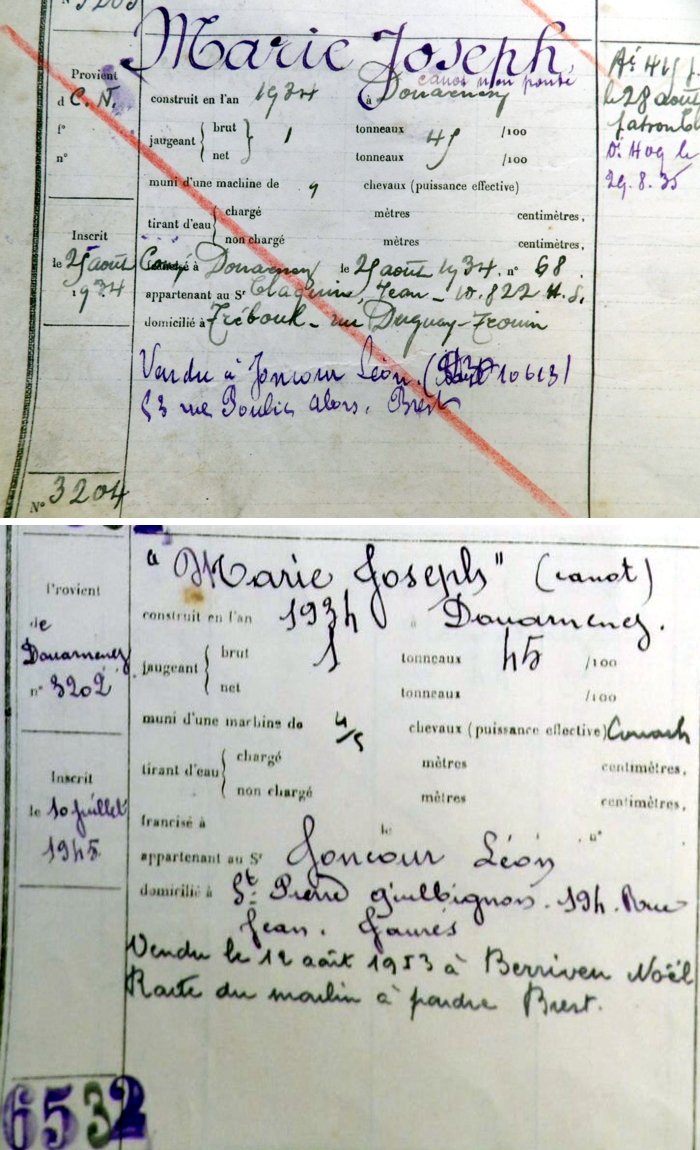 Marie Joseph
canot non ponté
Provient
d C. N.
f°
n°
construit en l'an 1934 à Douarnenez
jaugeant brut 1 tonneaux 45 /100
net tonneaux /100
muni d'une machine de 4 chevaux (puissance effective)
tirant d'eau chargé mètres centimètres,
non chargé mètres centimètres,
Inscrit
le 25 août
1934
Congé à Douarnenez le 25 août 1934. n° 68.
appartenant au Sr Claquin, Jean - 10.822 H.S.
domicilié à Tréboul - rue Duguay-Trouin
Vendu à Joncour Léon. (10613)
53 rue Poulic alors. Brest
N° 3204
le 28 août
29.8.35
"Marie Joseph" (canot)
Provient
de
Douarnenez
n° 3202
construit en l'an 1934 à Douarnenez.
jaugeant brut 1 tonneaux 45 /100
net tonneaux /100
muni d'une machine de 4/5 chevaux (puissance effective) Couach
tirant d'eau chargé mètres centimètres,
non chargé mètres centimètres,
Inscrit
le 10 juillet
1945
francisé à le n°
appartenant au Sr Joncour Léon
domicilié à St Pierre Quilbignon. 194. Rue
Jean. Jaurès
Vendu le 12 août 1953 à Berriven Noël
Route du moulin à poudre Brest.
6532